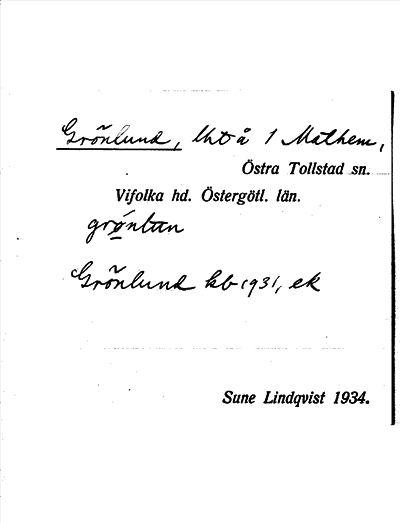 Grönlund, lht å 1 Mathem,
Östra Tollstad sn.
Vifolka hd. Östergötl. län.
Grönlund kb 1931, ek
Sune Lindqvist 1934.